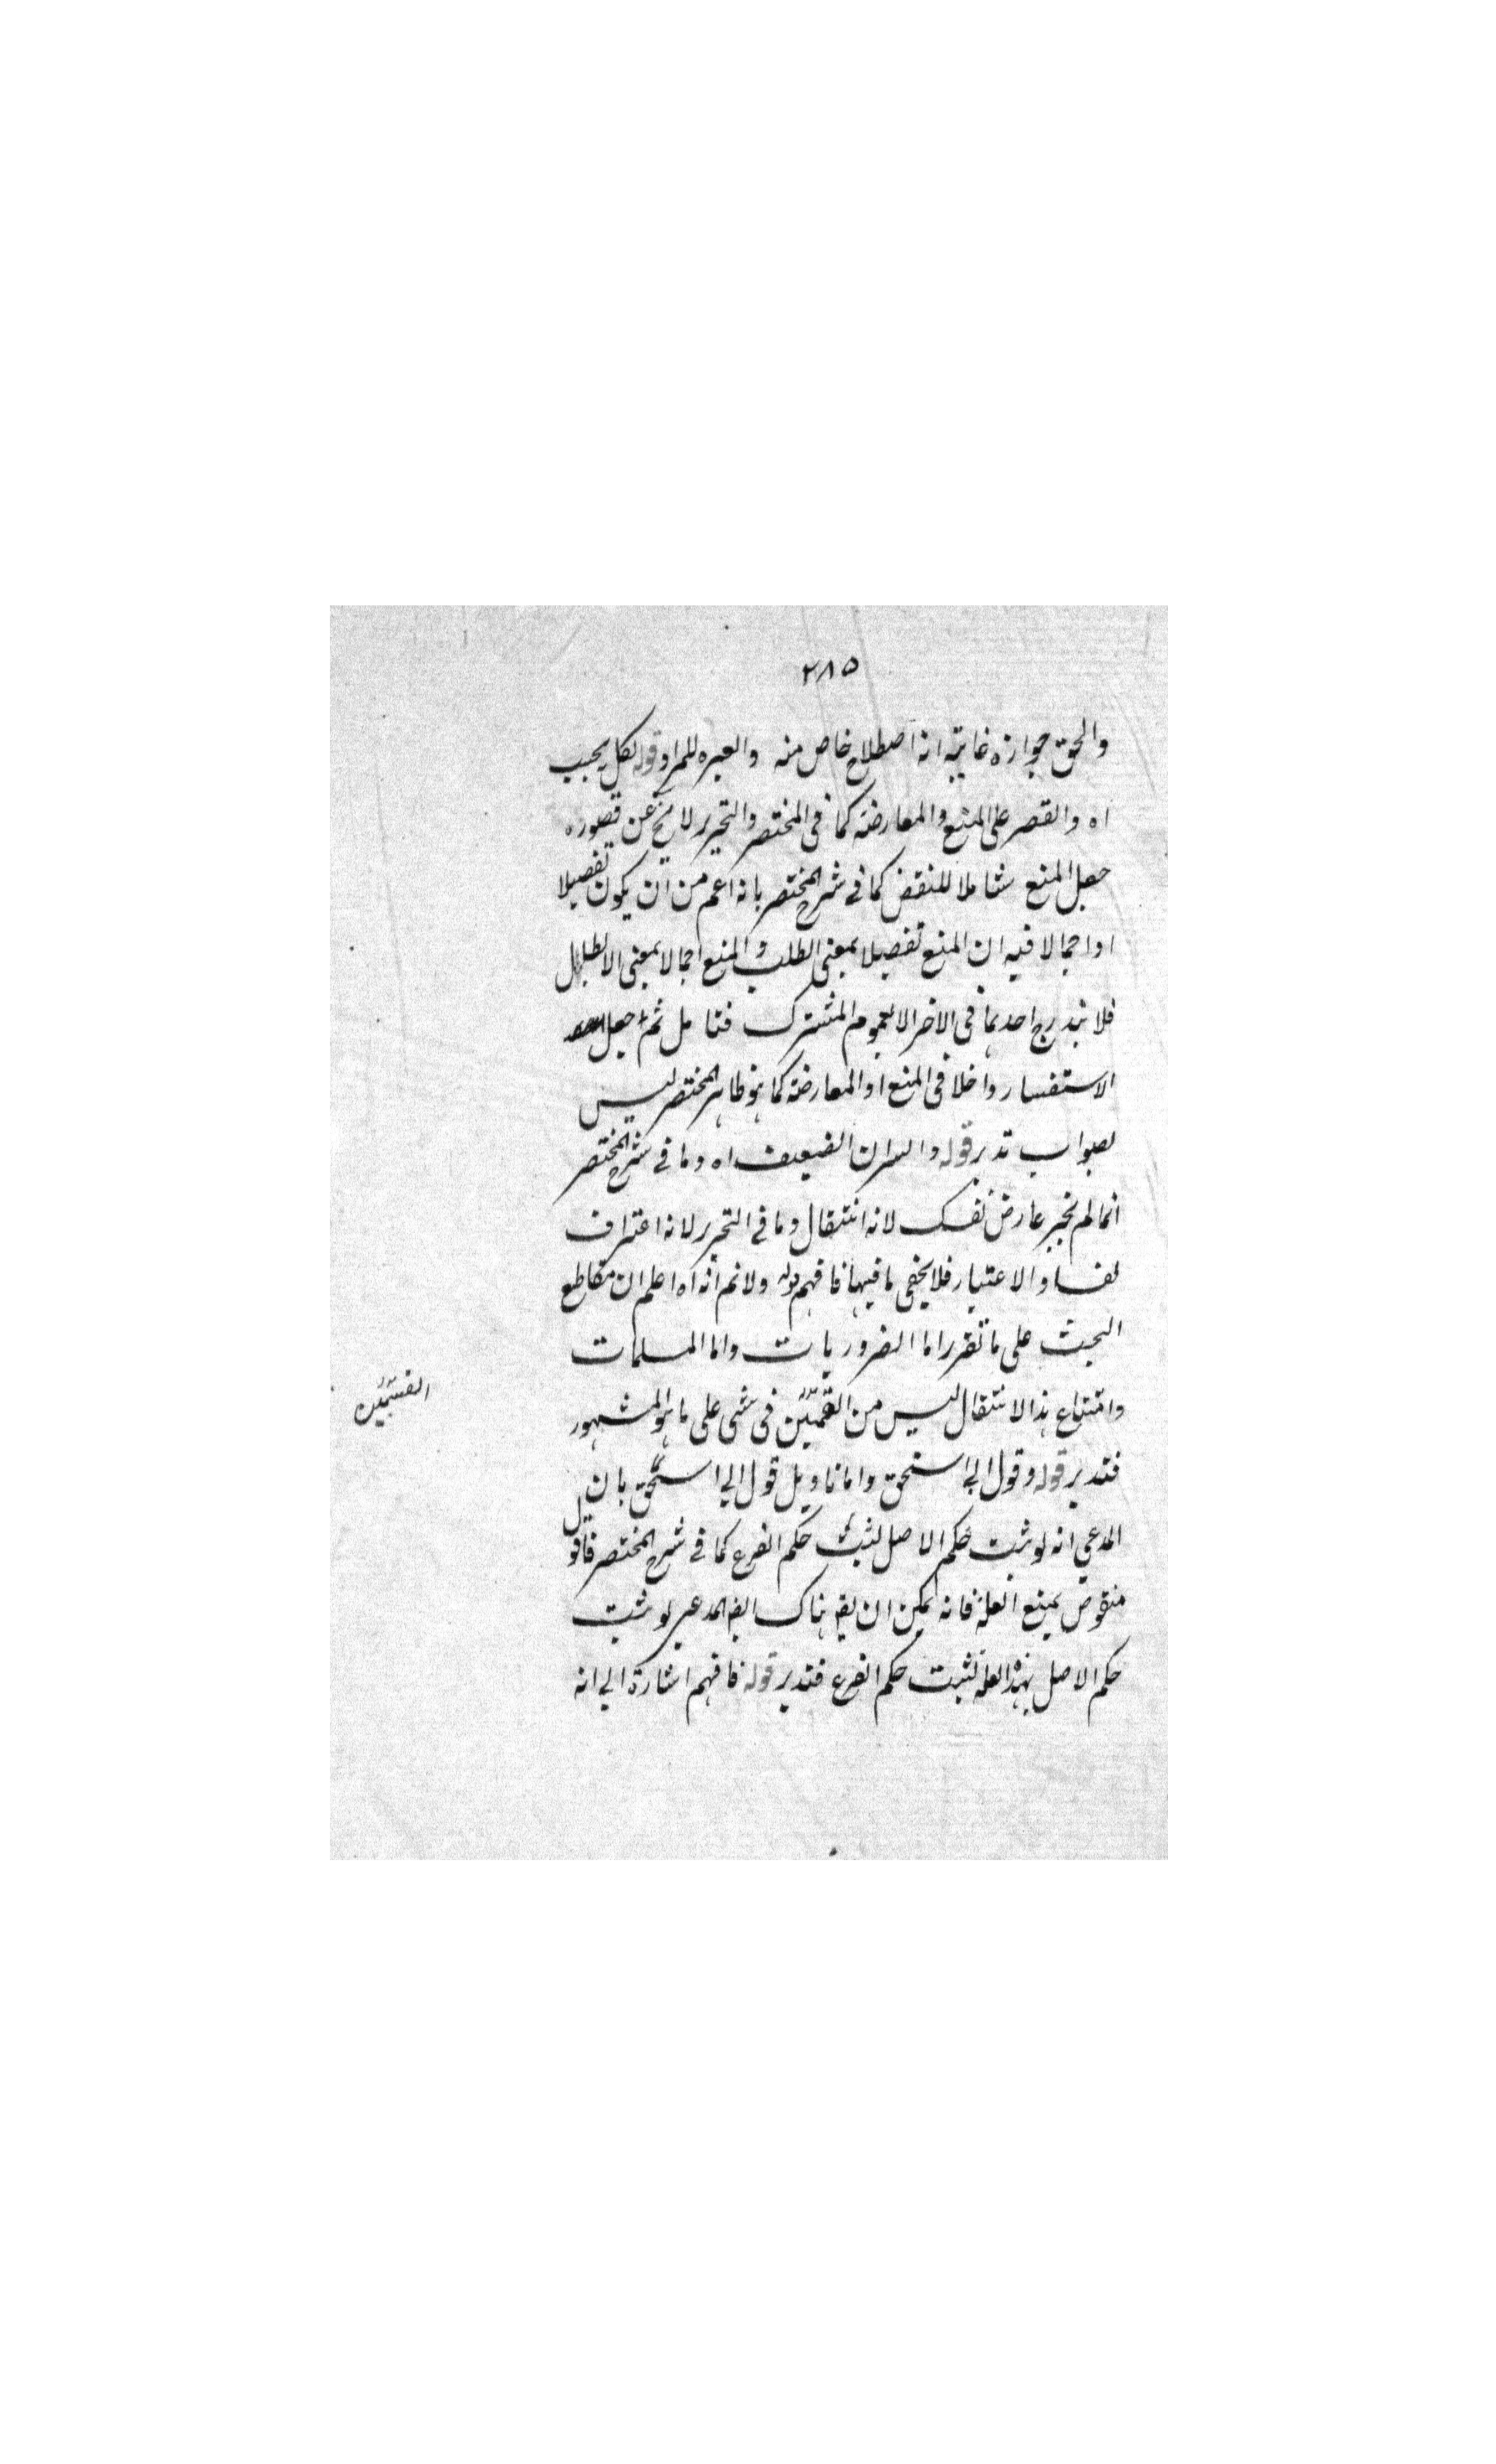 ٢٨٥
والحق جوازه غايته انه اصطلاح خاص منه والعبره للمراد قوله لكل يجيب
اه والقصر على المنع والمعارضة كما فى المختصر والتحرير لا يخ عن قصوره
جعل المنع شاملا للنقض كما فى شرح المختصر بانه اعم من ان يكون تفصيلا
او اجمالا فيه ان المنع تفصيلا بمعنى الطلب والمنع اجمالا بمعنى الابطال
فلا يندرج احدهما فى الاخر الا بعموم المشترك فتامل ثم جعل
الاستفسار داخلا فى المنع او المعارضة كما هو ظاهر المختصر ليس
بصواب تدبر قوله وا ان الضعيف اه وما فى شرح المختصر
انما لم يخبر عارض نفسك لانه انتقال وما فى التحرير لانه اعتراف
بفساد الاعتبار فلا يخفى ما فيها فافهم قوله ولانم انه اه اعلم ان مقاطع
البحث على ما تقرر اما الضروريات واما المسلمات
وامتناع هذا الانتقال ليس من القسمين فى شى على ما هو المشهور
القسمين
فتدبر قوله وقول ابى اسحق واما تاويل قول ابي اسحق بان
المدعي انه لو ثبت حكم الاصل لثبت حكم الفرع كما فى شرح المختصر فاقول
منقوض بمنع العلة فانه يمكن ان يقه هناك ايضا المدعى لو ثبت
حكم الاصل بهذه العلة لثبت حكم الفرع فتدبر قوله فافهم اشارة الي انه